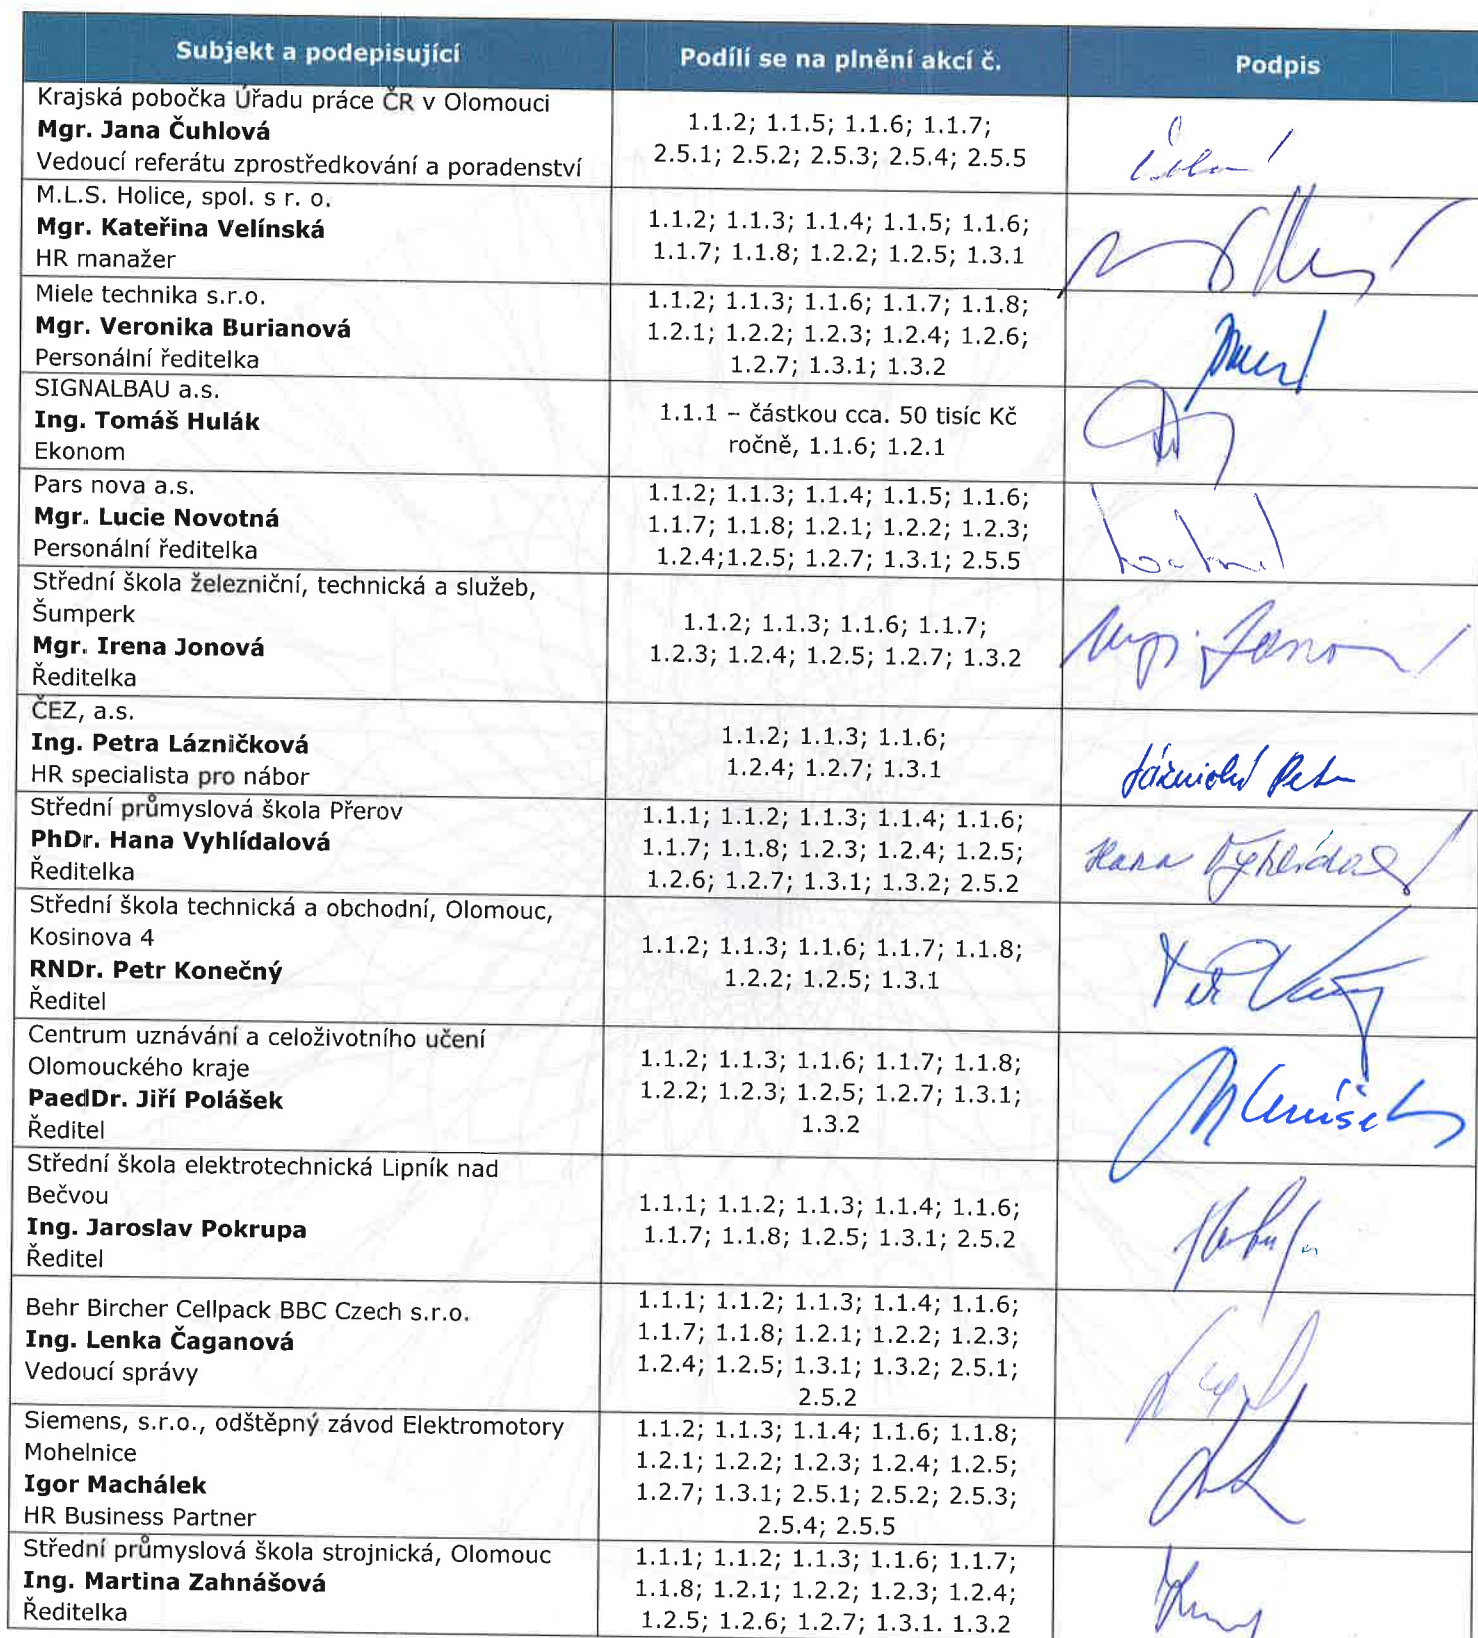 Subjekt a podepisující
Podílí se na plnění akcí č.
Podpis
Krajská pobočka Úřadu práce ČR v Olomouci
Mgr. Jana Čuhlová
Vedoucí referátu zprostředkování a poradenství
1.1.2; 1.1.5; 1.1.6; 1.1.7;
2.5.1; 2.5.2; 2.5.3; 2.5.4; 2.5.5
M.L.S. Holice, spol. s r. o.
Mgr. Kateřina Velínská
HR manažer
1.1.2; 1.1.3; 1.1.4; 1.1.5; 1.1.6;
1.1.7; 1.1.8; 1.2.2; 1.2.5; 1.3.1
Miele technika s.r.o.
Mgr. Veronika Burianová
Personální ředitelka
1.1.2; 1.1.3; 1.1.6; 1.1.7; 1.1.8;
1.2.1; 1.2.2; 1.2.3; 1.2.4; 1.2.6;
1.2.7; 1.3.1; 1.3.2
SIGNALBAU a.s.
Ing. Tomáš Hulák
Ekonom
1.1.1 – částkou cca. 50 tisíc Kč
ročně, 1.1.6; 1.2.1
Pars nova a.s.
Mgr. Lucie Novotná
Personální ředitelka
1.1.2; 1.1.3; 1.1.4; 1.1.5; 1.1.6;
1.1.7; 1.1.8; 1.2.1; 1.2.2; 1.2.3;
1.2.4;1.2.5; 1.2.7; 1.3.1; 2.5.5
Střední škola železniční, technická a služeb,
Šumperk
Mgr. Irena Jonová
Ředitelka
1.1.2; 1.1.3; 1.1.6; 1.1.7;
1.2.3; 1.2.4; 1.2.5; 1.2.7; 1.3.2
ČEZ, a.s.
Ing. Petra Lázničková
HR specialista pro nábor
1.1.2; 1.1.3; 1.1.6;
1.2.4; 1.2.7; 1.3.1
Střední průmyslová škola Přerov
PhDr. Hana Vyhlídalová
Ředitelka
1.1.1; 1.1.2; 1.1.3; 1.1.4; 1.1.6;
1.1.7; 1.1.8; 1.2.3; 1.2.4; 1.2.5;
1.2.6; 1.2.7; 1.3.1; 1.3.2; 2.5.2
Střední škola technická a obchodní, Olomouc,
Kosinova 4
RNDr. Petr Konečný
Ředitel
1.1.2; 1.1.3; 1.1.6; 1.1.7; 1.1.8;
1.2.2; 1.2.5; 1.3.1
Centrum uznávání a celoživotního učení
Olomouckého kraje
PaedDr. Jiří Polášek
Ředitel
1.1.2; 1.1.3; 1.1.6; 1.1.7; 1.1.8;
1.2.2; 1.2.3; 1.2.5; 1.2.7; 1.3.1;
1.3.2
Střední škola elektrotechnická Lipník nad
Bečvou
Ing. Jaroslav Pokrupa
Ředitel
1.1.1; 1.1.2; 1.1.3; 1.1.4; 1.1.6;
1.1.7; 1.1.8; 1.2.5; 1.3.1; 2.5.2
Behr Bircher Cellpack BBC Czech s.r.o.
Ing. Lenka Čaganová
Vedoucí správy
1.1.1; 1.1.2; 1.1.3; 1.1.4; 1.1.6;
1.1.7; 1.1.8; 1.2.1; 1.2.2; 1.2.3;
1.2.4; 1.2.5; 1.3.1; 1.3.2; 2.5.1;
2.5.2
Siemens, s.r.o., odštěpný závod Elektromotory
Mohelnice
Igor Machálek
HR Business Partner
1.1.2; 1.1.3; 1.1.4; 1.1.6; 1.1.8;
1.2.1; 1.2.2; 1.2.3; 1.2.4; 1.2.5;
1.2.7; 1.3.1; 2.5.1; 2.5.2; 2.5.3;
2.5.4; 2.5.5
Střední průmyslová škola strojnická, Olomouc
Ing. Martina Zahnášová
Ředitelka
1.1.1; 1.1.2; 1.1.3; 1.1.6; 1.1.7;
1.1.8; 1.2.1; 1.2.2; 1.2.3; 1.2.4;
1.2.5; 1.2.6; 1.2.7; 1.3.1. 1.3.2